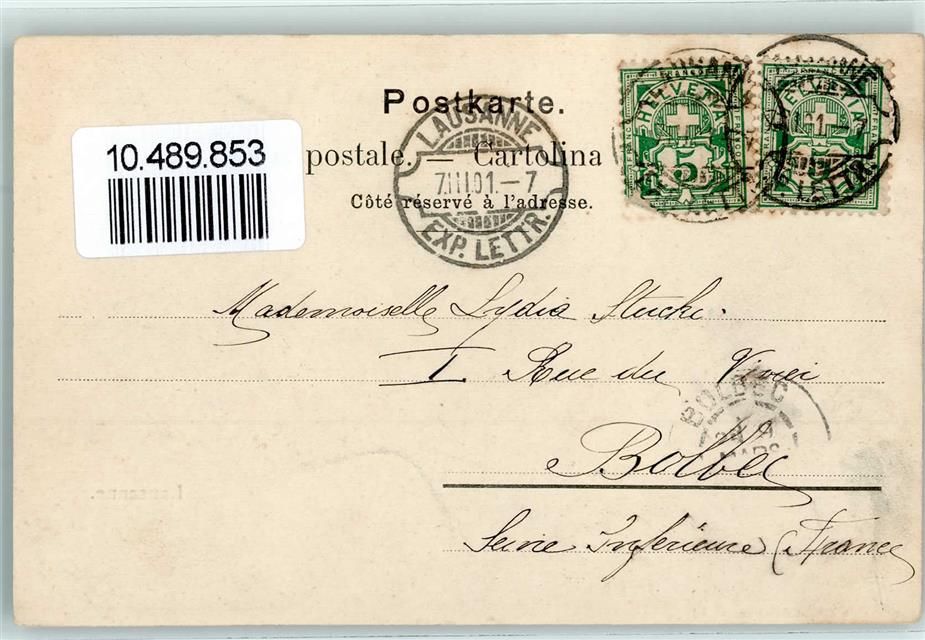 Postkarte.
10.489.853
postale. — Cartolina
Côté réservé à l'adresse.
LAUSANNE
7.III.01.–7
EXP. LETTR.
HELVETIA
5
HELVETIA
Mademoiselle Lydia Stucki.
I Rue du Vivier
BOLBEC
MARS
Bolbec
Seine Inférieure (France